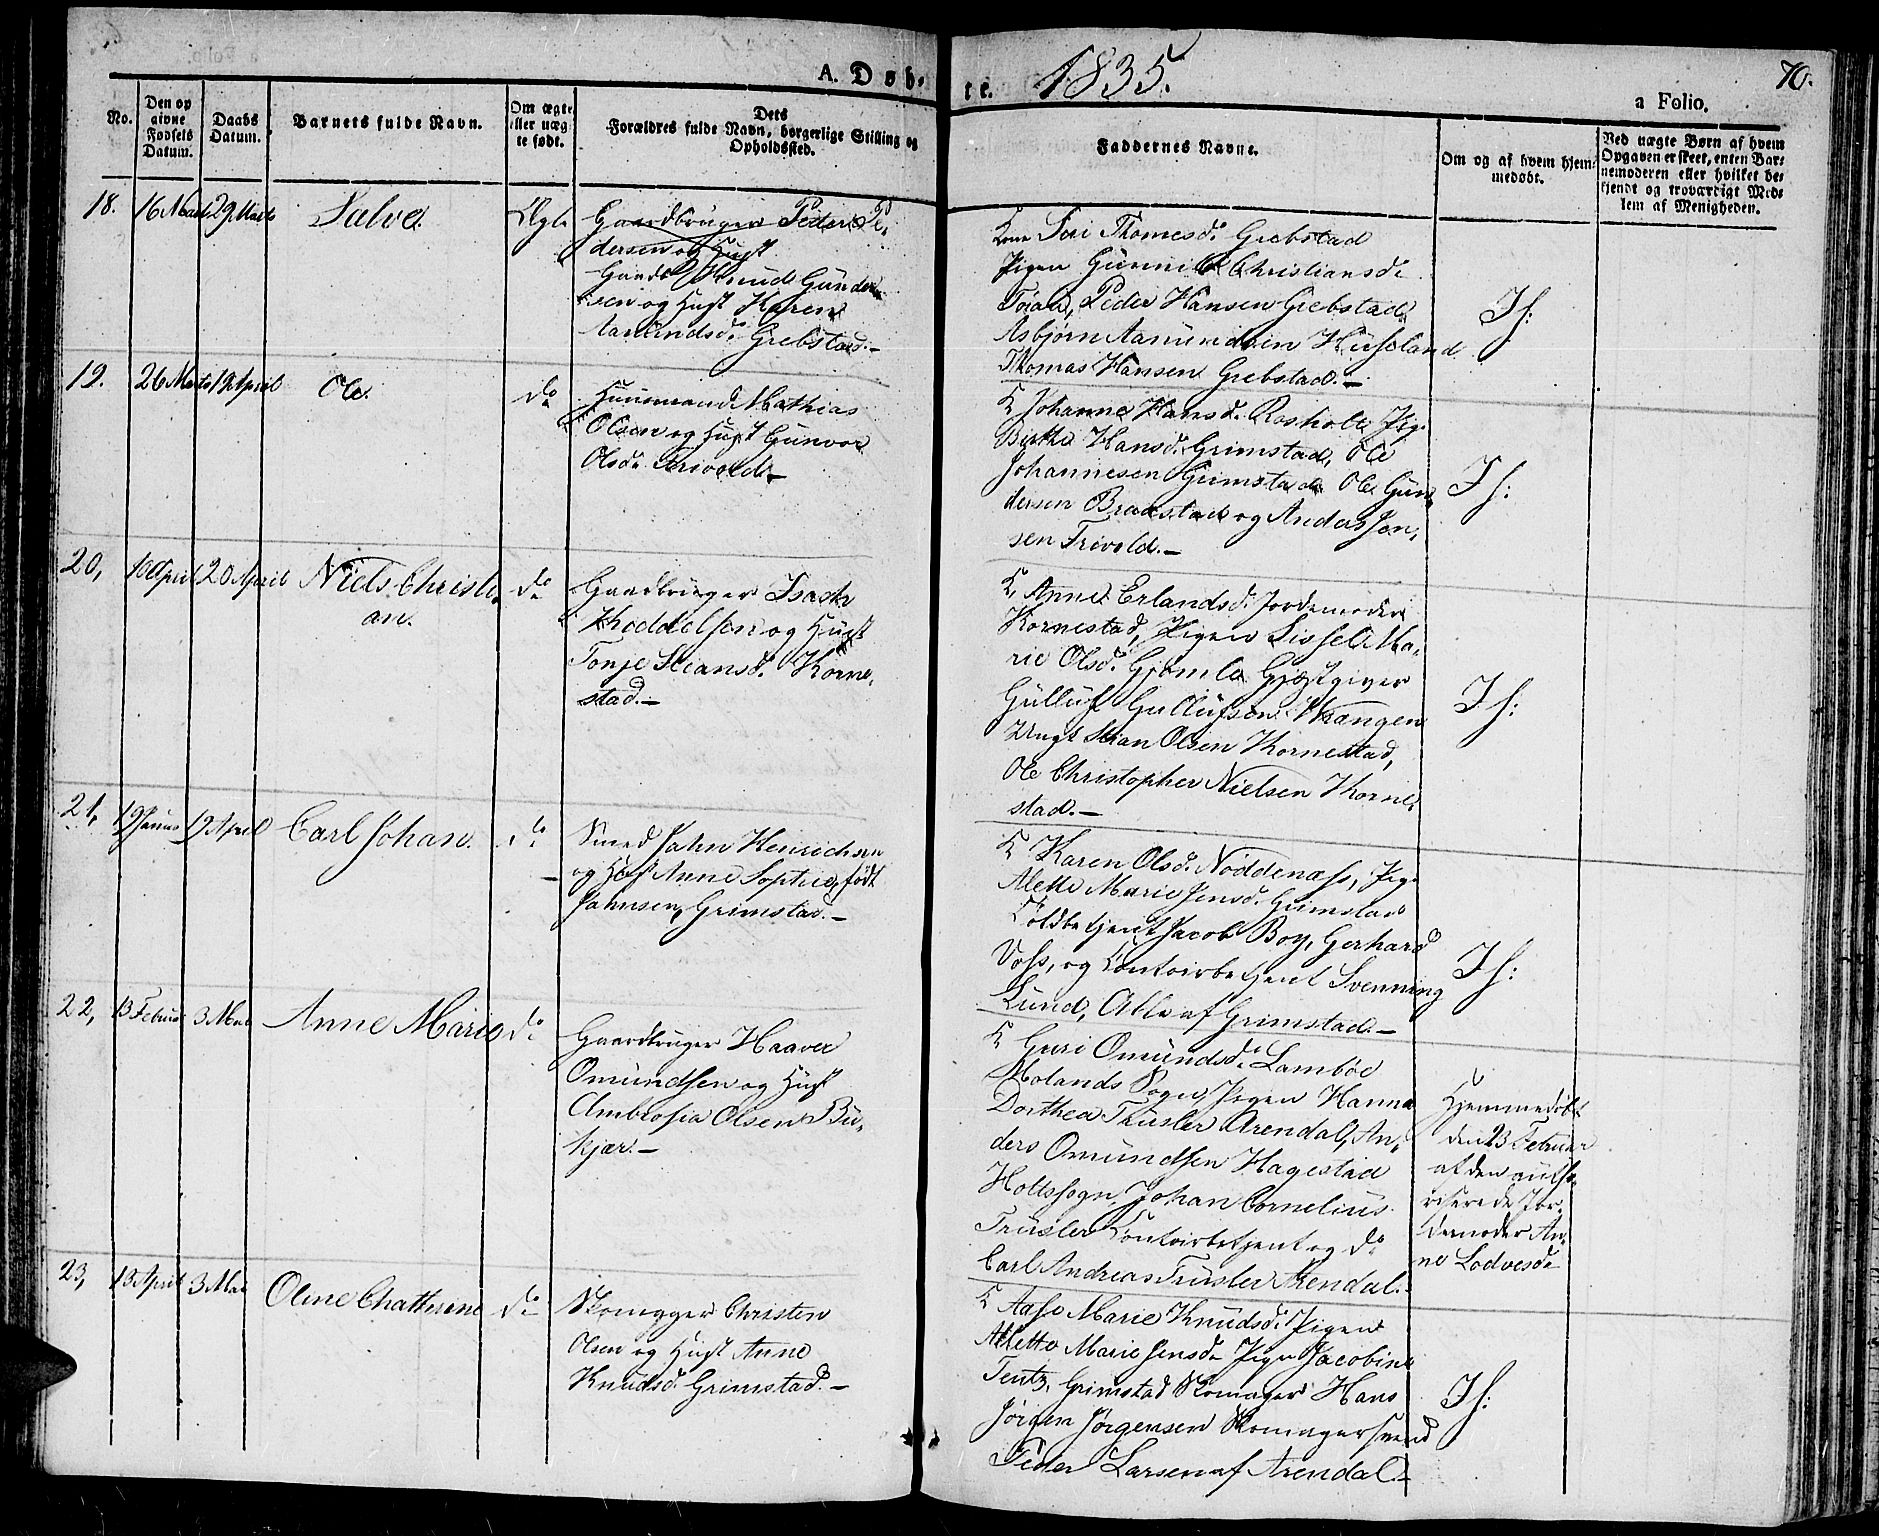 A. Døb-
te. 1835.
70.
a Folio.
No.
Den op
givne
Fødsels
Datum.
Daabs
Datum.
Barnets fulde Navn.
Om ægte
eller uæg
te født.
Dets
Forældres fulde Navn, borgerlige Stilling og
Opholdssted.
Faddernes Navne.
Om og af hvem hjem-
medøbt.
Ved uægte Børn af hvem
Opgaven er skeet, enten Bar-
nemoderen eller hvilket be-
kjendt og troværdigt Med-
lem af Menigheden.
18. 16 Marts 29 Marts Salve. Ægte
Gaardbruger Peder Pe-
dersen og Hust
Gaardb Knud Gunder-
sen og Hust Karen
Aamundsd. Grebstad.-
Kone Siri Thomesd. Grebstad
Pigen Gunnild Christiansd.
Peder Hansen Grebstad
Asbjørn Aamundsen Huseland
Thomas Hansen Grebstad.-
If:
19. 26 Marts 19 April Ole. do
Huusmand Mathias
Olsen og Hust Gunvor
Olsd. Trivold.-
K Johanne Hansd. Rosholt, Pig.
Birthe Hansd. Grimstad, Ole
Johannesen Grimstad Ole Gun-
dersen Braastad og Anders Jen-
sen Trivold.-
If:
20, 10 April 20 April Niels Christi-
an. do
Gaardbruger Isach
Koddelsen og Hust
Tonje Steansd. Korne-
stad.-
K, Anne Erlandsd. Jordemoder
Kornestad, Pigen Sissel Ma-
rie Olsd. Gjømle Gjestgiver
Gulluf Gullufsen Vrangen
Ungk Stian Olsen Kornestad,
Ole Christopher Nielsen Korne-
stad.-
If:
21, 19 Janua 19 April Carl Johan. do
Smed Jahn Henrichsen
og Hust Anne Sophie, født
Jahnsen, Grimstad.-
K Karen Olsd. Noddenæss, Pig.
Alette Marie Jensd. Grimstad
Toldbetjent Jacob Boy, Gerhard
Voss, og Contoirbetjent Svenning
Lund, Alle af Grimstad.-
If:
22, 13 Februar 3 Mai Anne Marie do
Gaardbruger Haaver
Omundsen og Hust
Ambrosia Olsen Bu-
kjær.-
K Guri Omundsd. Lambøe
Molands Sogn, Pigen Hanna
Dorthea Trusler Arendal, An-
ders Omundsen Hagestad
Holts sogn, Johan Cornelius
Trusler Contoirbetjent og do
Carl Andreas Trusler Arendal.
Hjemmedøbt
den 23 Februar
af den autho-
riserede Jor-
demoder An-
ne Lodvesd.
23, 13 April 3 Mai Oline Chathrine do
Skomager Christen
Olsen og Hust Anne
Knudsd. Grimstad.-
K Aase Marie Knudsd. Pigen
Alette Marie Jensd. Pigen Jacobine
Tentz, Grimstad Skomager Hans
Jørgen Jørgensen Skomagersvend
Peder Larsen af Arendal.-
If: